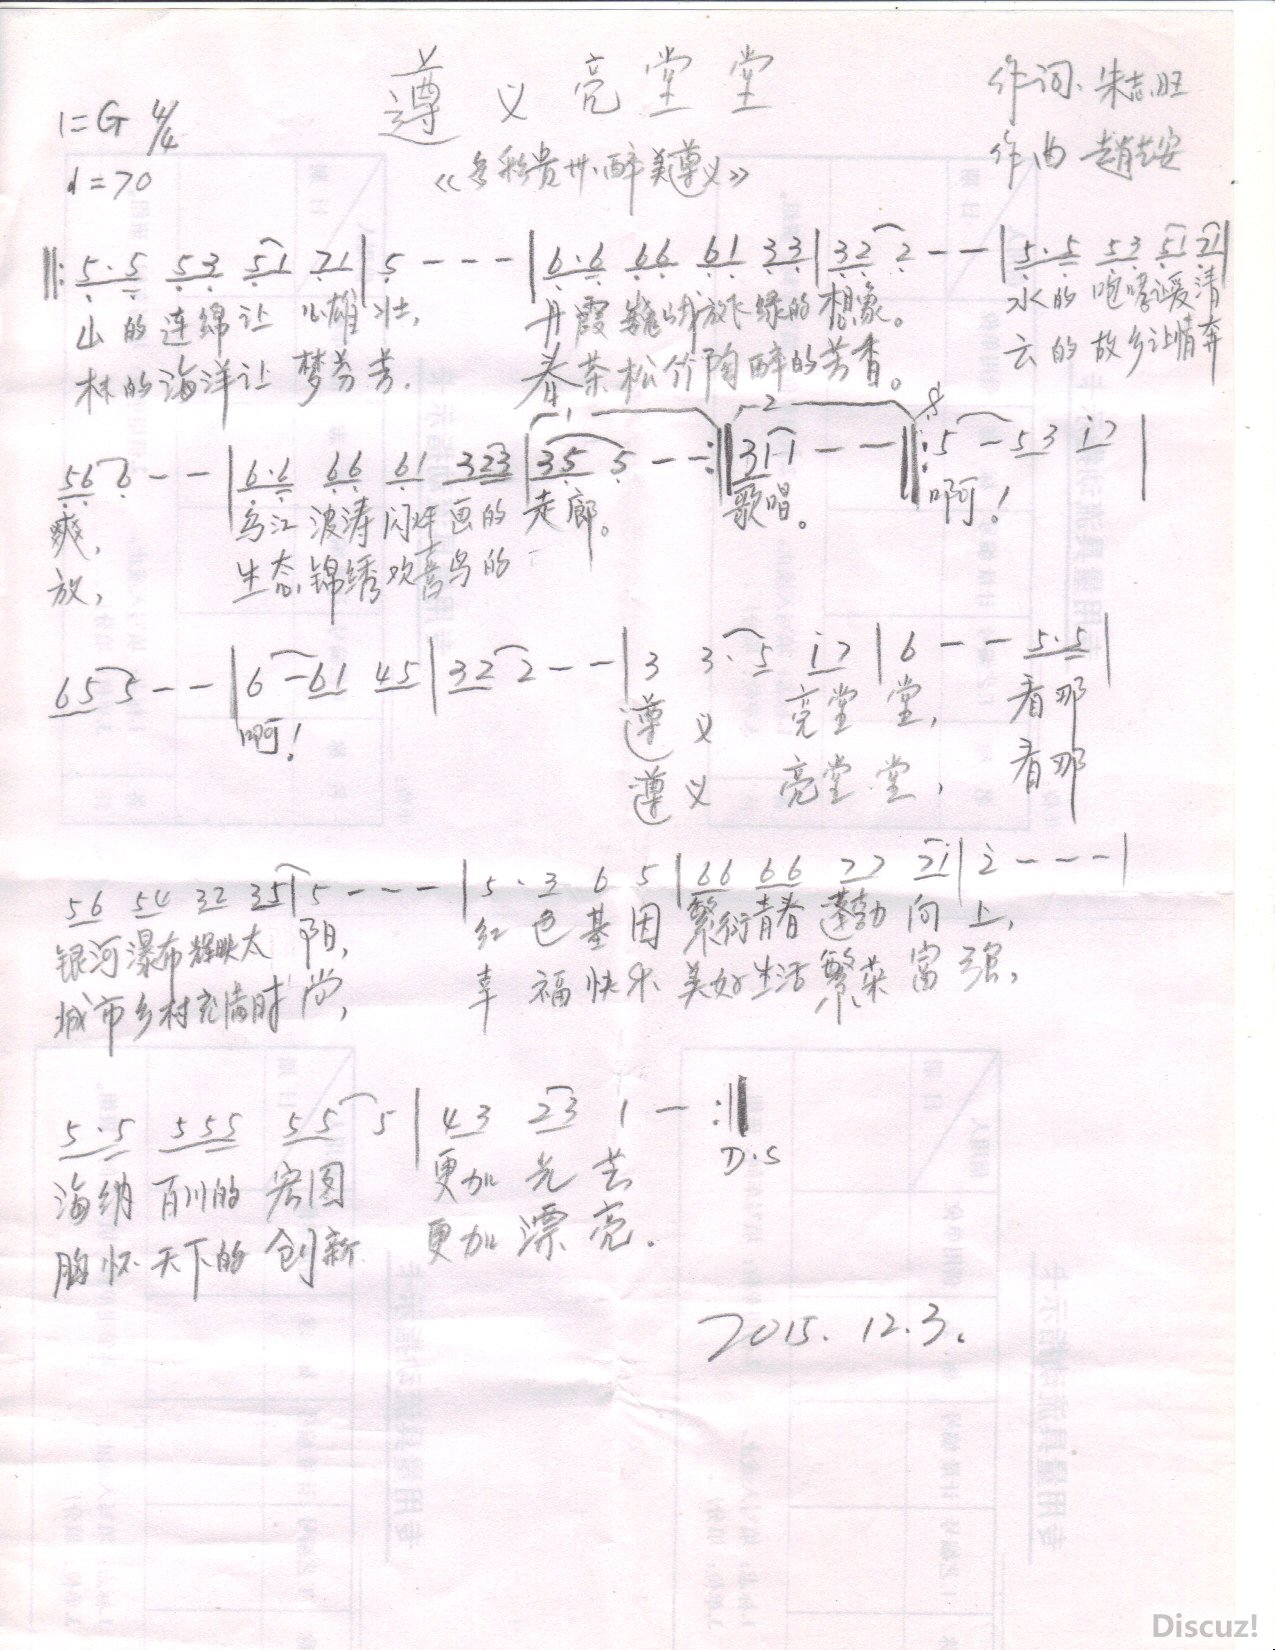 遵义亮堂堂
作词:朱志旺
1=G 4/4
作曲 赵安
♩=70
《多彩贵州·醉美遵义》
‖: 5·5 53 51 71 | 5 - - - | 6·6 66 61 33 | 32 2 - - | 5·5 53 51 71 |
山的连绵让心雄壮, 丹霞巍峨放飞绿的想象。 水的咆哮让爱清
林的海洋让梦芬芳. 春茶松竹陶醉的芳香。 云的故乡让情奔
1 2
56 6 - - | 6·6 66 61 323 | 35 5 - - :‖ 311 - - ‖: 5 - 53 i7 |
爽, 乌江波涛闪烁画的走廊。 歌唱。 啊!
放, 生态锦绣欢喜鸟的
65 5 - - | 6 - 61 45 | 32 2 - - | 3 3·5 i7 | 6 - - 5·5 |
啊! 遵义亮堂堂, 看那
遵义亮堂堂, 看那
56 54 32 35 | 5 - - - | 5·3 6 5 | 66 66 77 7i | 2 - - - |
银河瀑布辉映太阳, 红色基因繁衍青春蓬勃向上,
城市乡村充满时尚, 幸福快乐美好生活繁荣富强,
5·5 555 55 5 | 43 23 1 - :‖
D.S
海纳百川的宏图 更加光芒
胸怀天下的创新 更加漂亮.
2015.12.3.
Discuz!